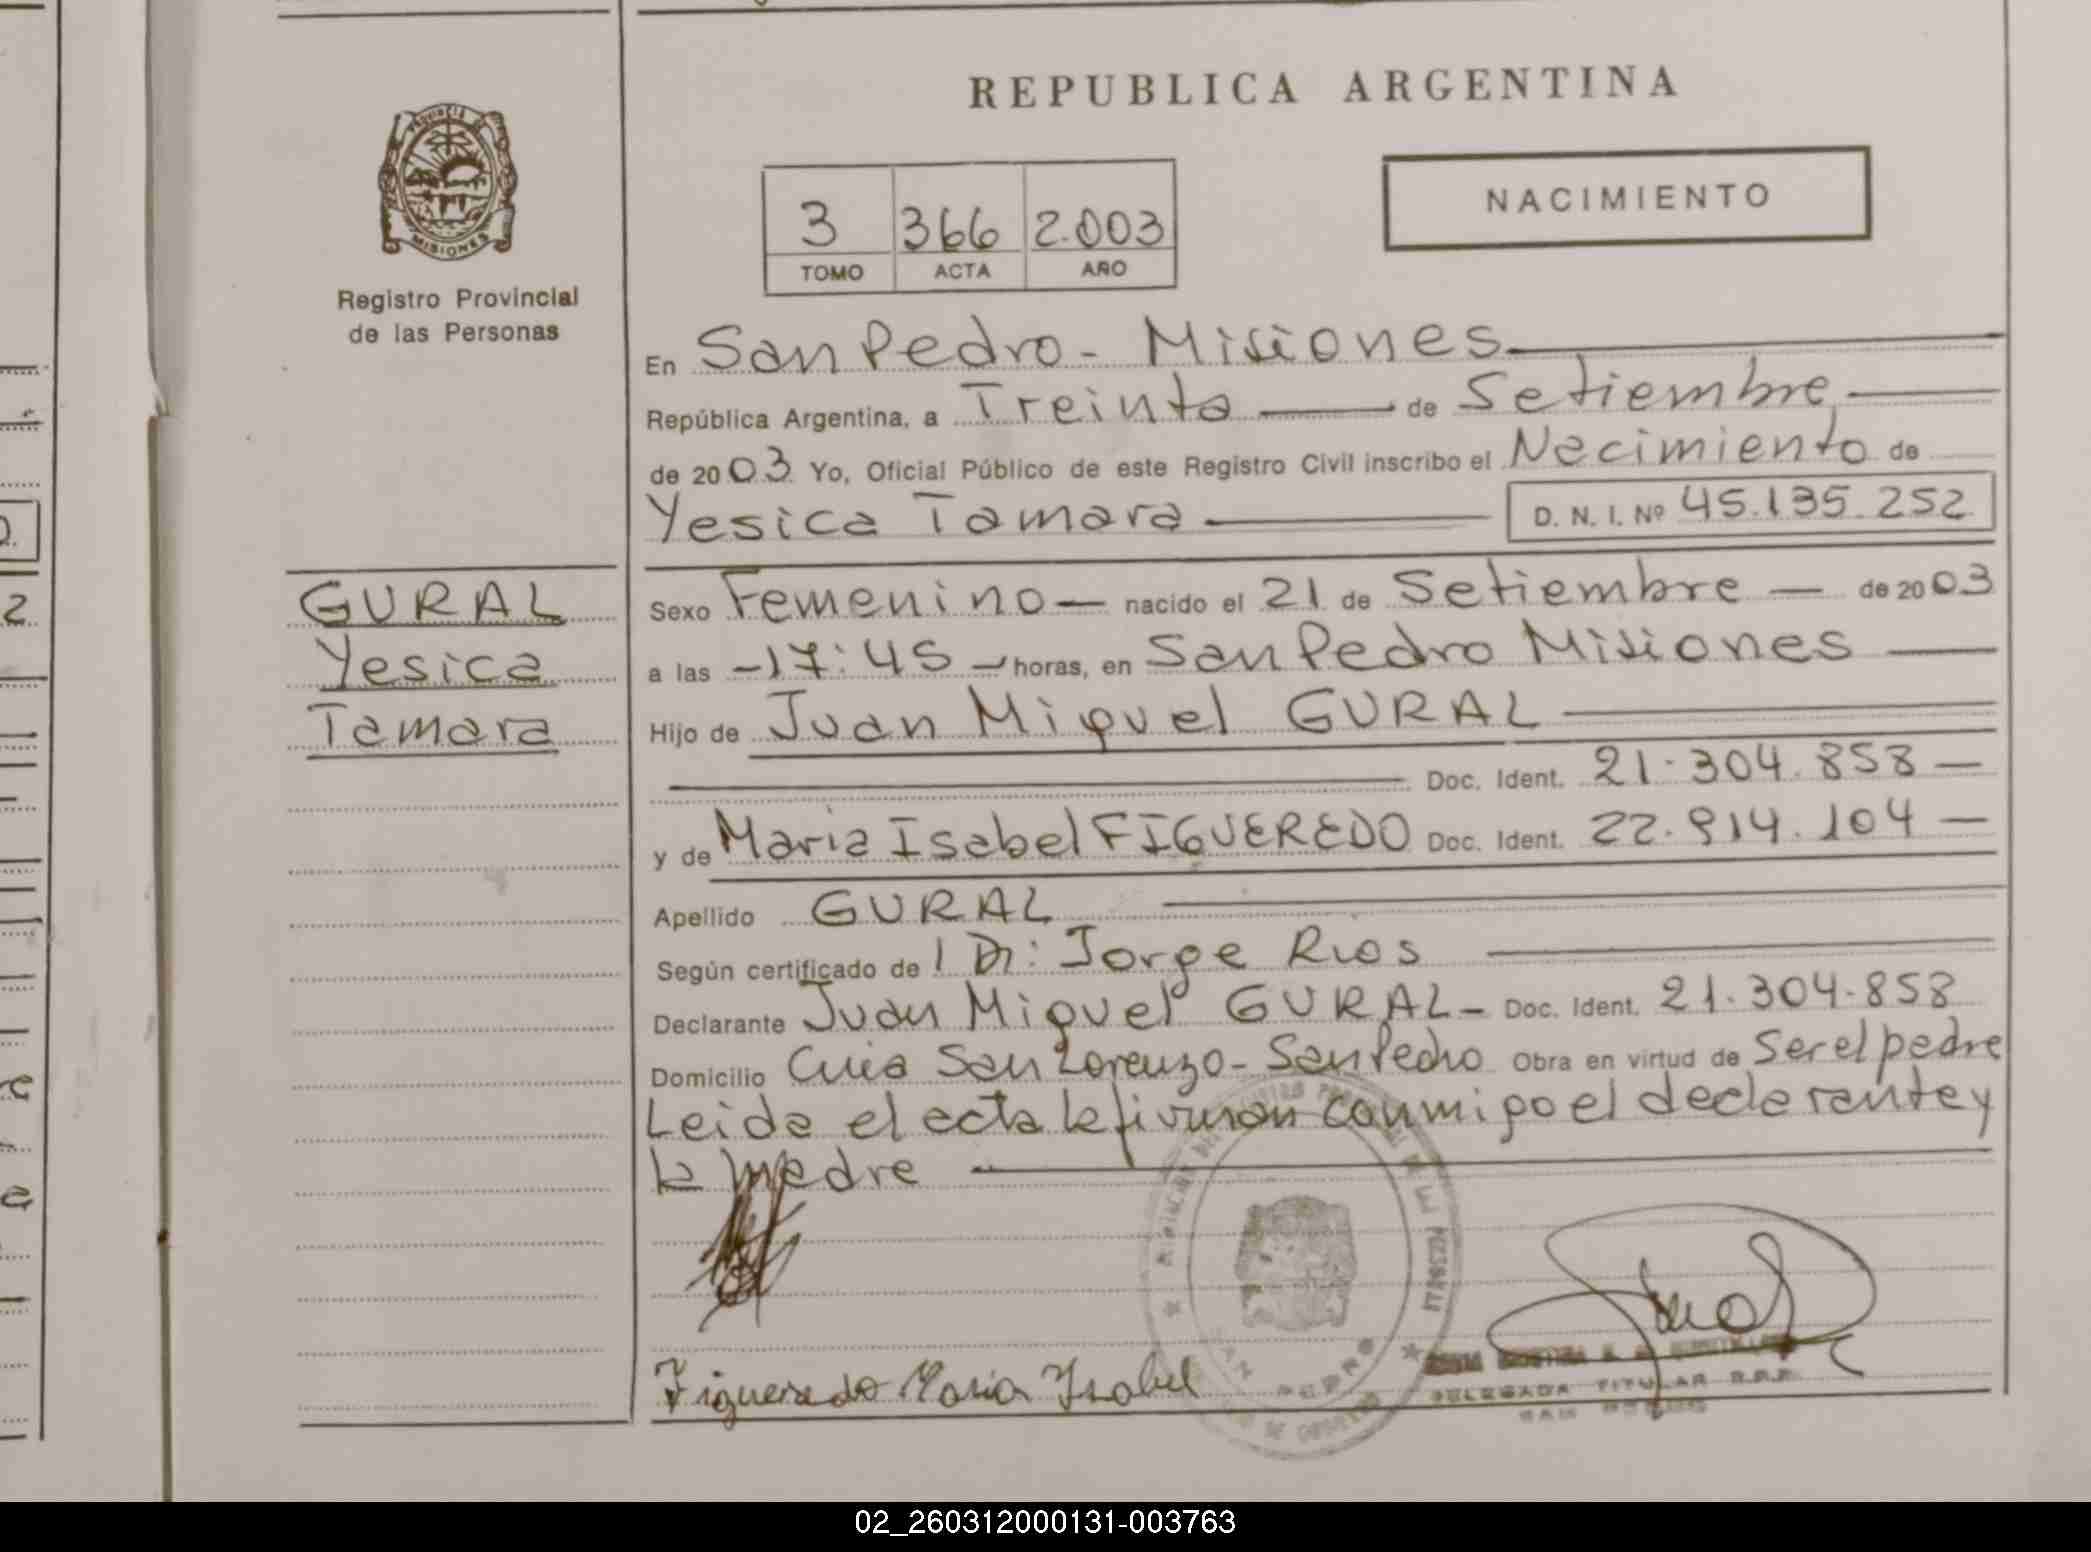 REPUBLICA ARGENTINA
NACIMIENTO
3 366 2.003
TOMO ACTA AÑO
PROVINCIA DE
MISIONES
Registro Provincial
de las Personas
En San Pedro - Misiones
República Argentina, a Treinta de Setiembre
de 2003 Yo, Oficial Público de este Registro Civil inscribo el Nacimiento de
Yesica Tamara D. N. I. Nº 45.135.252
GURAL
Yesica
Tamara
Sexo Femenino nacido el 21 de Setiembre de 2003
a las -17:45 - horas, en San Pedro Misiones
Hijo de Juan Miguel GURAL
Doc. Ident. 21.304.858
y de Maria Isabel FIGUEREDO Doc. Ident. 22.914.104
Apellido GURAL
Según certificado de l Dr: Jorge Rios
Declarante Juan Miguel GURAL - Doc. Ident. 21.304.858
Domicilio San Lorenzo - San Pedro Obra en virtud de Ser el padre
Leida el acta la firman conmigo el declarante y
la madre
Figueredo Maria Isabel
SAN PEDRO
DELEGADA TITULAR R.P.P.
SAN PEDRO
02_260312000131-003763